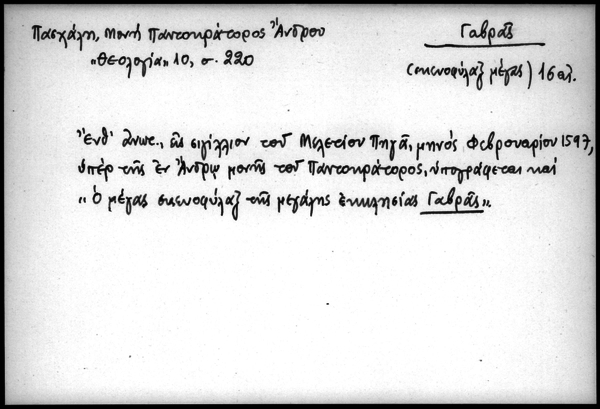 Πασχάλη, Μονή Παντοκράτορος Ἄνδρου
"Θεολογία" 10, σ. 220
Γαβρᾶς
(σκευοφύλαξ μέγας) 16 αἰ.
Ἔνθ' ἀνωτ., εἰς σιγίλλιον τοῦ Μελετίου Πηγᾶ, μηνός Φεβρουαρίου 1597,
ὑπέρ τῆς ἐν Ἄνδρῳ μονῆς τοῦ Παντοκράτορος, ὑπογράφεται καί
"Ὁ μέγας σκευοφύλαξ τῆς μεγάλης ἐκκλησίας Γαβρᾶς".